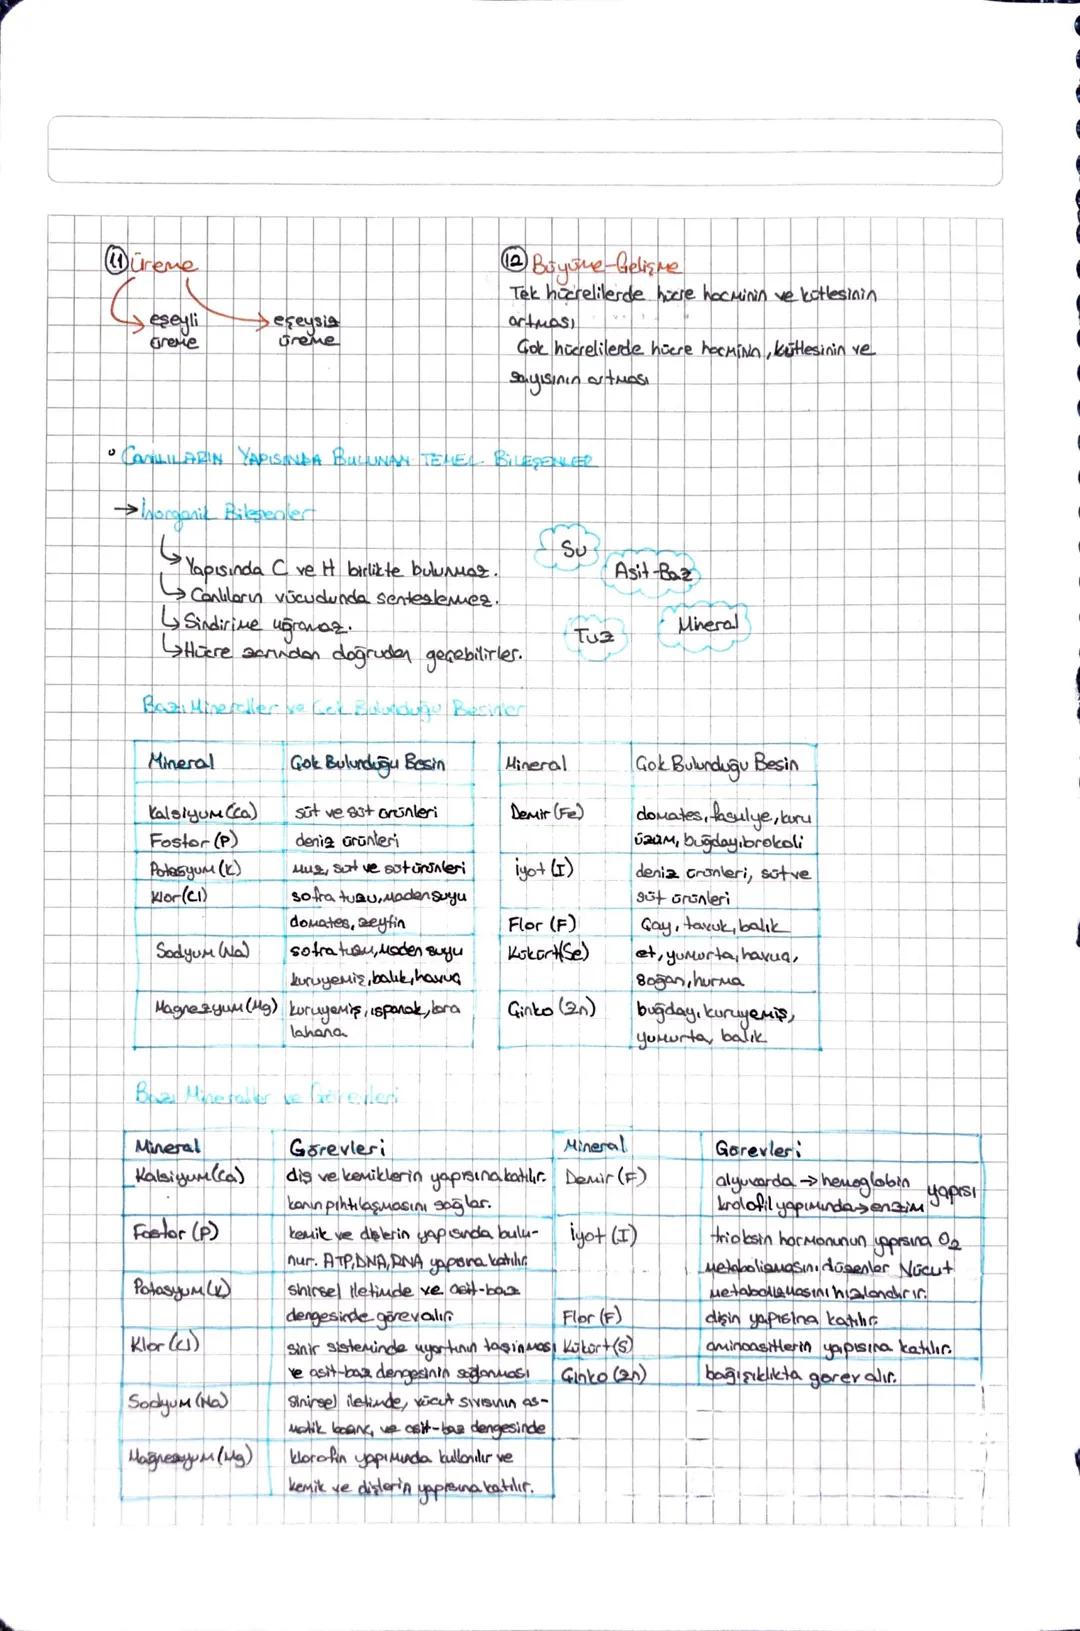 11 Üreme
eşeyli üreme
eşeysiz üreme
12 Büyüme-Gelişme
Tek hücrelilerde hücre hacminin ve kütlesinin
artması
Çok hücrelilerde hücre hacminin, kütlesinin ve
sayısının artması
° CANLILARIN YAPISINDA BULUNAN TEMEL BİLEŞENLER
→ İnorganik Bileşenler
Yapısında C ve H birlikte bulunmaz.
Canlıların vücudunda sentezlenmez.
Sindirime uğramaz.
Hücre zarından doğrudan geçebilirler.
Su
Asit-Baz
Tuz
Mineral
Bazı Mineraller ve Çok Bulunduğu Besinler
Mineral Çok Bulunduğu Besin
Kalsiyum (Ca) süt ve süt ürünleri
Fosfor (P) deniz ürünleri
Potasyum (K) muz, süt ve süt ürünleri
Klor (Cl) sofra tuzu, maden suyu
domates, zeytin
Sodyum (Na) sofra tuzu, maden suyu
kuruyemiş, balık, havuç
Magnezyum (Mg) kuruyemiş, ıspanak, kara
lahana
Mineral Çok Bulunduğu Besin
Demir (Fe) domates, fasulye, kuru
üzüm, buğday, brokoli
İyot (I) deniz ürünleri, süt ve
süt ürünleri
Flor (F) Çay, tavuk, balık
Kükürt (Se) et, yumurta, havuç,
soğan, hurma
Çinko (Zn) buğday, kuruyemiş,
yumurta, balık
Bazı Mineraller ve Görevleri
Mineral Görevleri
Kalsiyum (Ca) diş ve kemiklerin yapısına katılır.
kanın pıhtılaşmasını sağlar.
Fosfor (P) kemik ve dişlerin yapısında bulu-
nur. ATP, DNA, RNA yapısına katılır.
Potasyum (K) sinirsel iletimde ve asit-baz
dengesinde görev alır.
Klor (Cl) sinir sisteminde uyartının taşınması
ve asit-baz dengesinin sağlanması
Sodyum (Na) sinirsel iletimde, vücut sıvısının os-
motik basınç, ve asit-baz dengesinde
Magnezyum (Mg) klorofin yapımında kullanılır ve
kemik ve dişlerin yapısına katılır.
Mineral Görevleri
Demir (F) alyuvarda → hemoglobin yapısı
krolofil yapımında → enzim
İyot (I) trioksin hormonunun yapısına O2
metabolizmasını düzenler Vücut
metabolizmasını hızlandırır.
Flor (F) dişin yapısına katılır.
Kükürt (S) aminoasitlerin yapısına katılır.
Çinko (Zn) bağışıklıkta görev alır.